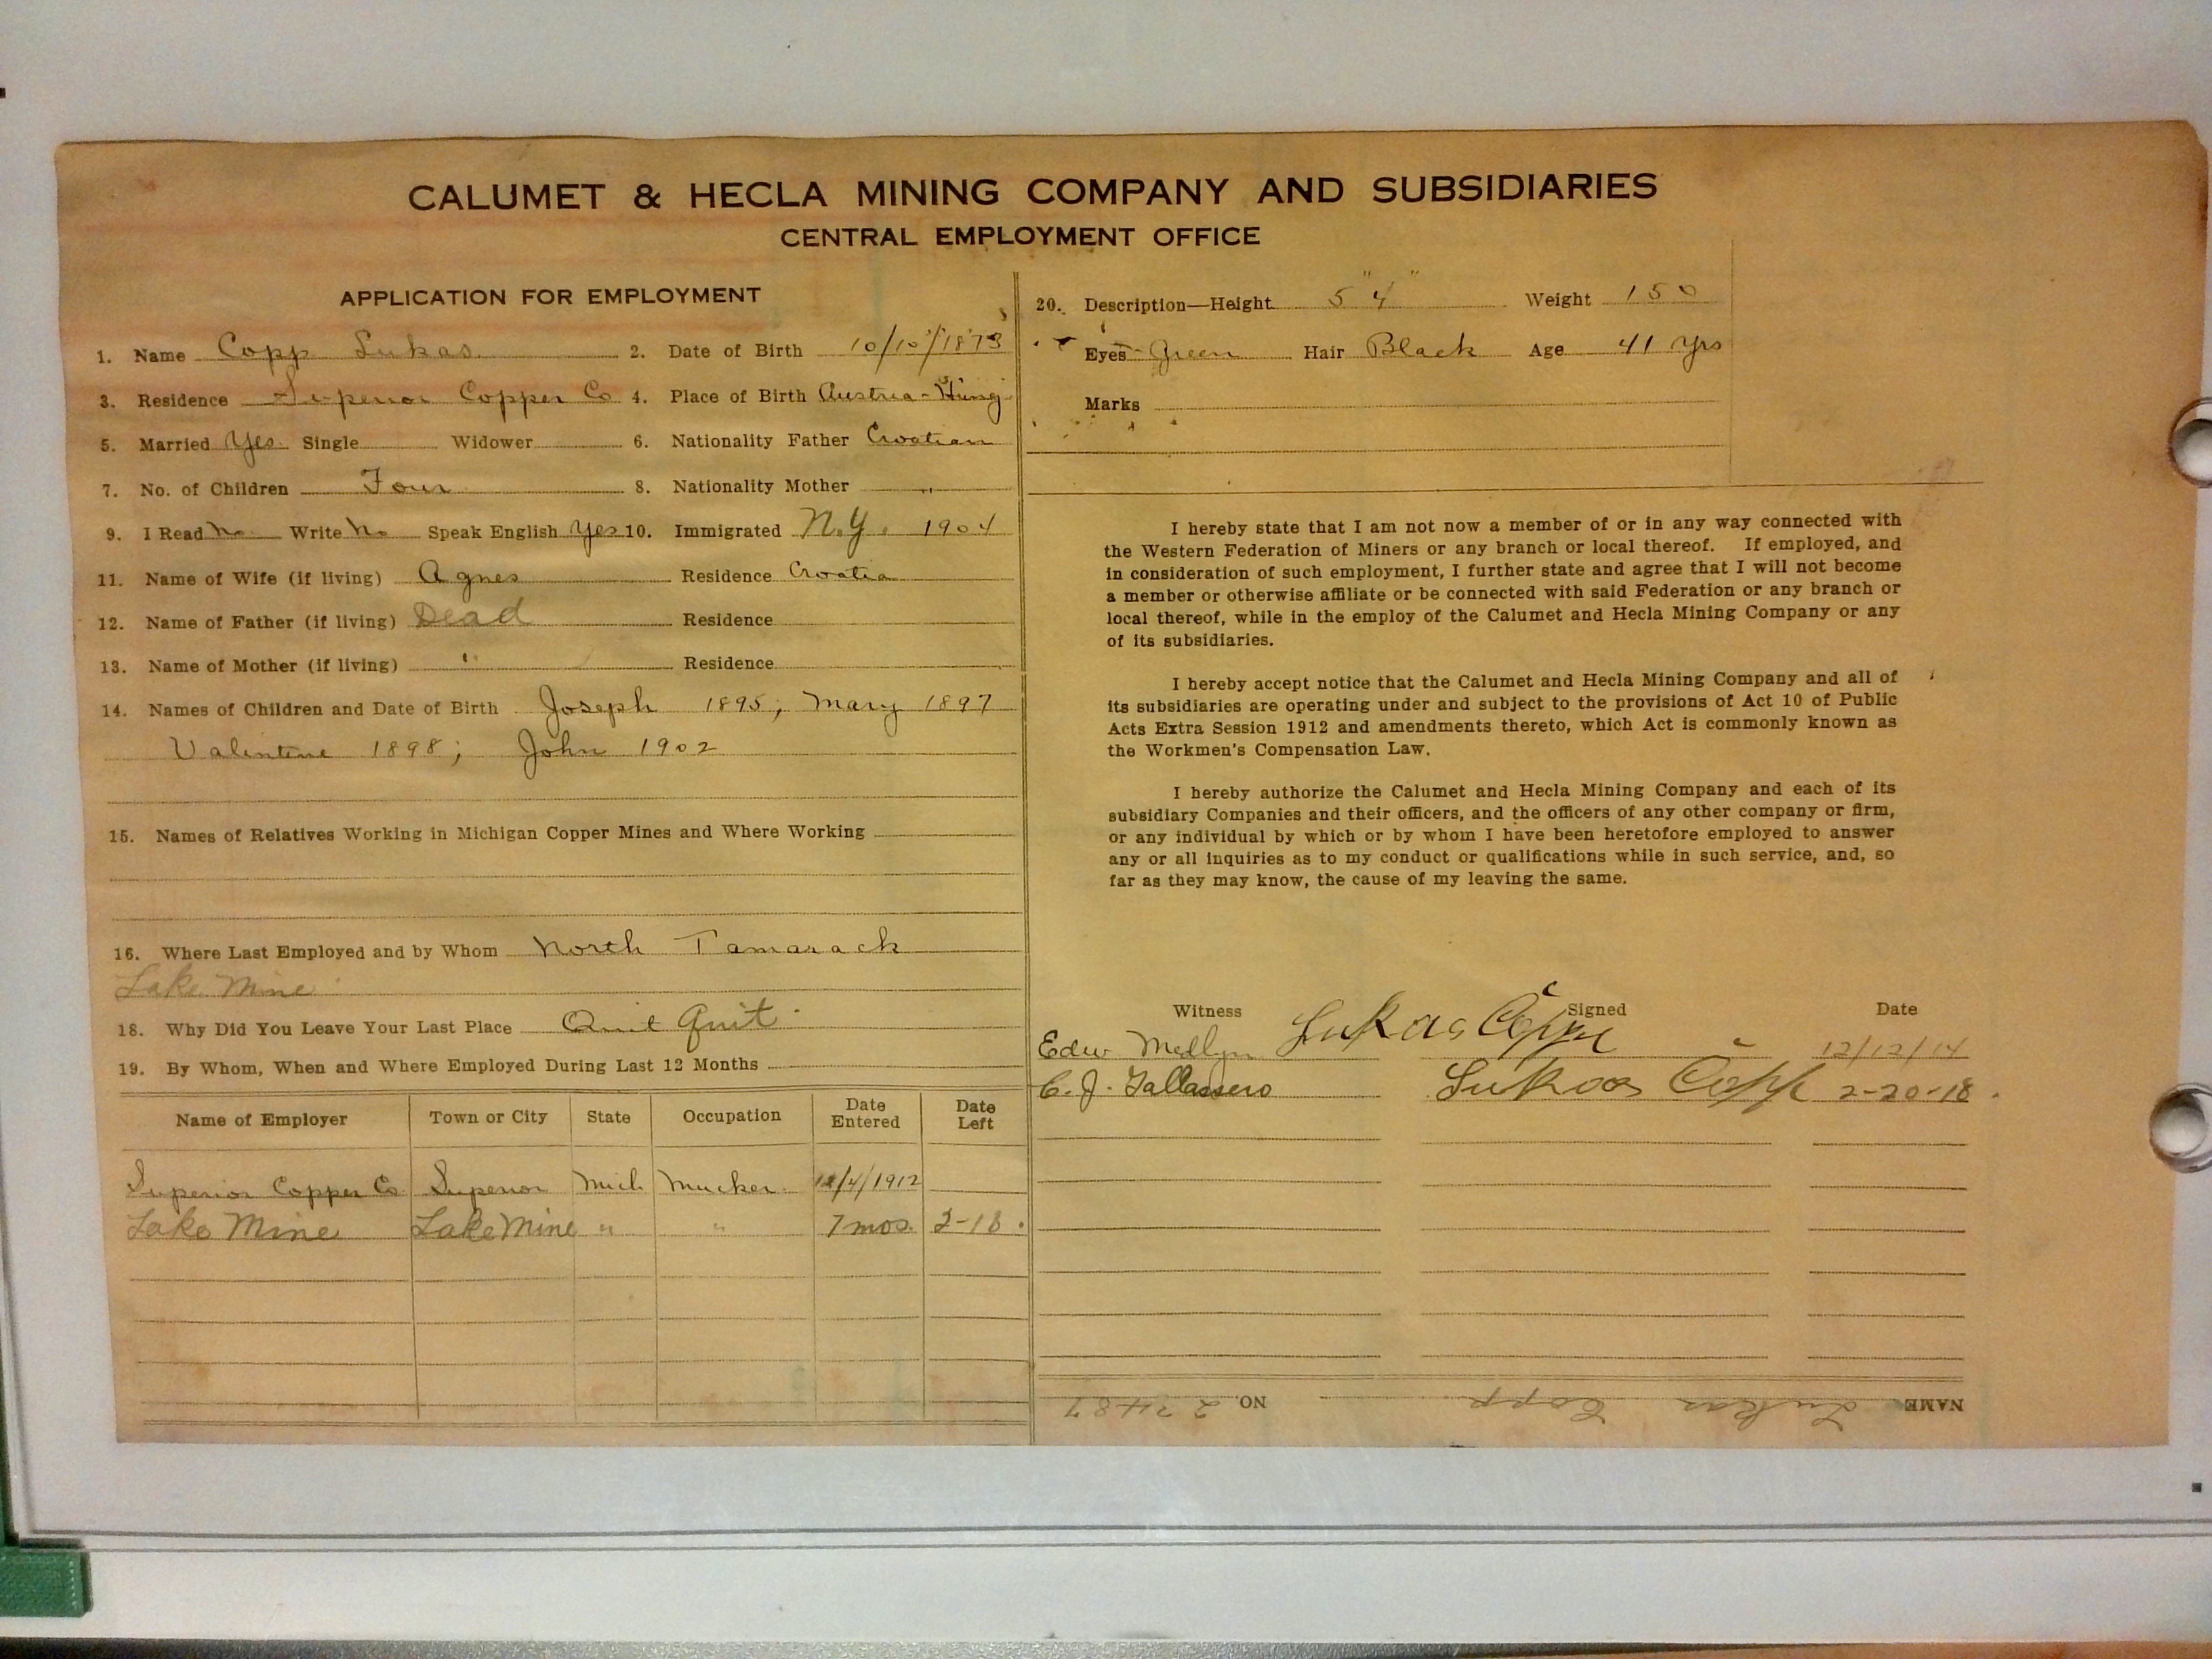 CALUMET & HECLA MINING COMPANY AND SUBSIDIARIES
CENTRAL EMPLOYMENT OFFICE
APPLICATION FOR EMPLOYMENT
1. Name Copp Lukas 2. Date of Birth 10/10/1873
3. Residence Superior Copper Co 4. Place of Birth Austria-Hung
5. Married Yes Single Widower 6. Nationality Father Croatian
7. No. of Children Four 8. Nationality Mother "
9. I Read No Write No Speak English Yes 10. Immigrated N.Y. 1904
11. Name of Wife (if living) Agnes Residence Croatia
12. Name of Father (if living) Dead Residence
13. Name of Mother (if living) " Residence
14. Names of Children and Date of Birth Joseph 1895; Mary 1897
Valentine 1898; John 1902
15. Names of Relatives Working in Michigan Copper Mines and Where Working
16. Where Last Employed and by Whom North Tamarack
Lake Mine
18. Why Did You Leave Your Last Place Quit Quit
19. By Whom, When and Where Employed During Last 12 Months
Name of Employer Town or City State Occupation Date Entered Date Left
Superior Copper Co Superior Mich Mucker 12/4/1912
Lake Mine Lake Mine " " 7 mos. 2-18.
20. Description—Height 5' 4" Weight 150
Eyes Green Hair Black Age 41 yrs
Marks
I hereby state that I am not now a member of or in any way connected with
the Western Federation of Miners or any branch or local thereof. If employed, and
in consideration of such employment, I further state and agree that I will not become
a member or otherwise affiliate or be connected with said Federation or any branch or
local thereof, while in the employ of the Calumet and Hecla Mining Company or any
of its subsidiaries.
I hereby accept notice that the Calumet and Hecla Mining Company and all of
its subsidiaries are operating under and subject to the provisions of Act 10 of Public
Acts Extra Session 1912 and amendments thereto, which Act is commonly known as
the Workmen's Compensation Law.
I hereby authorize the Calumet and Hecla Mining Company and each of its
subsidiary Companies and their officers, and the officers of any other company or firm,
or any individual by which or by whom I have been heretofore employed to answer
any or all inquiries as to my conduct or qualifications while in such service, and, so
far as they may know, the cause of my leaving the same.
Witness Signed Date
Edw Medlyn Lukas Copp 12/12/14
C. J. Lukas Copp 2-20-18.
NAME Lukas Copp NO. 27487